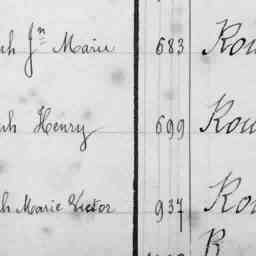 ph Jn Marie 683 Rou
ph Henry 699 Rou
ph Marie Victor 937 Rou
R